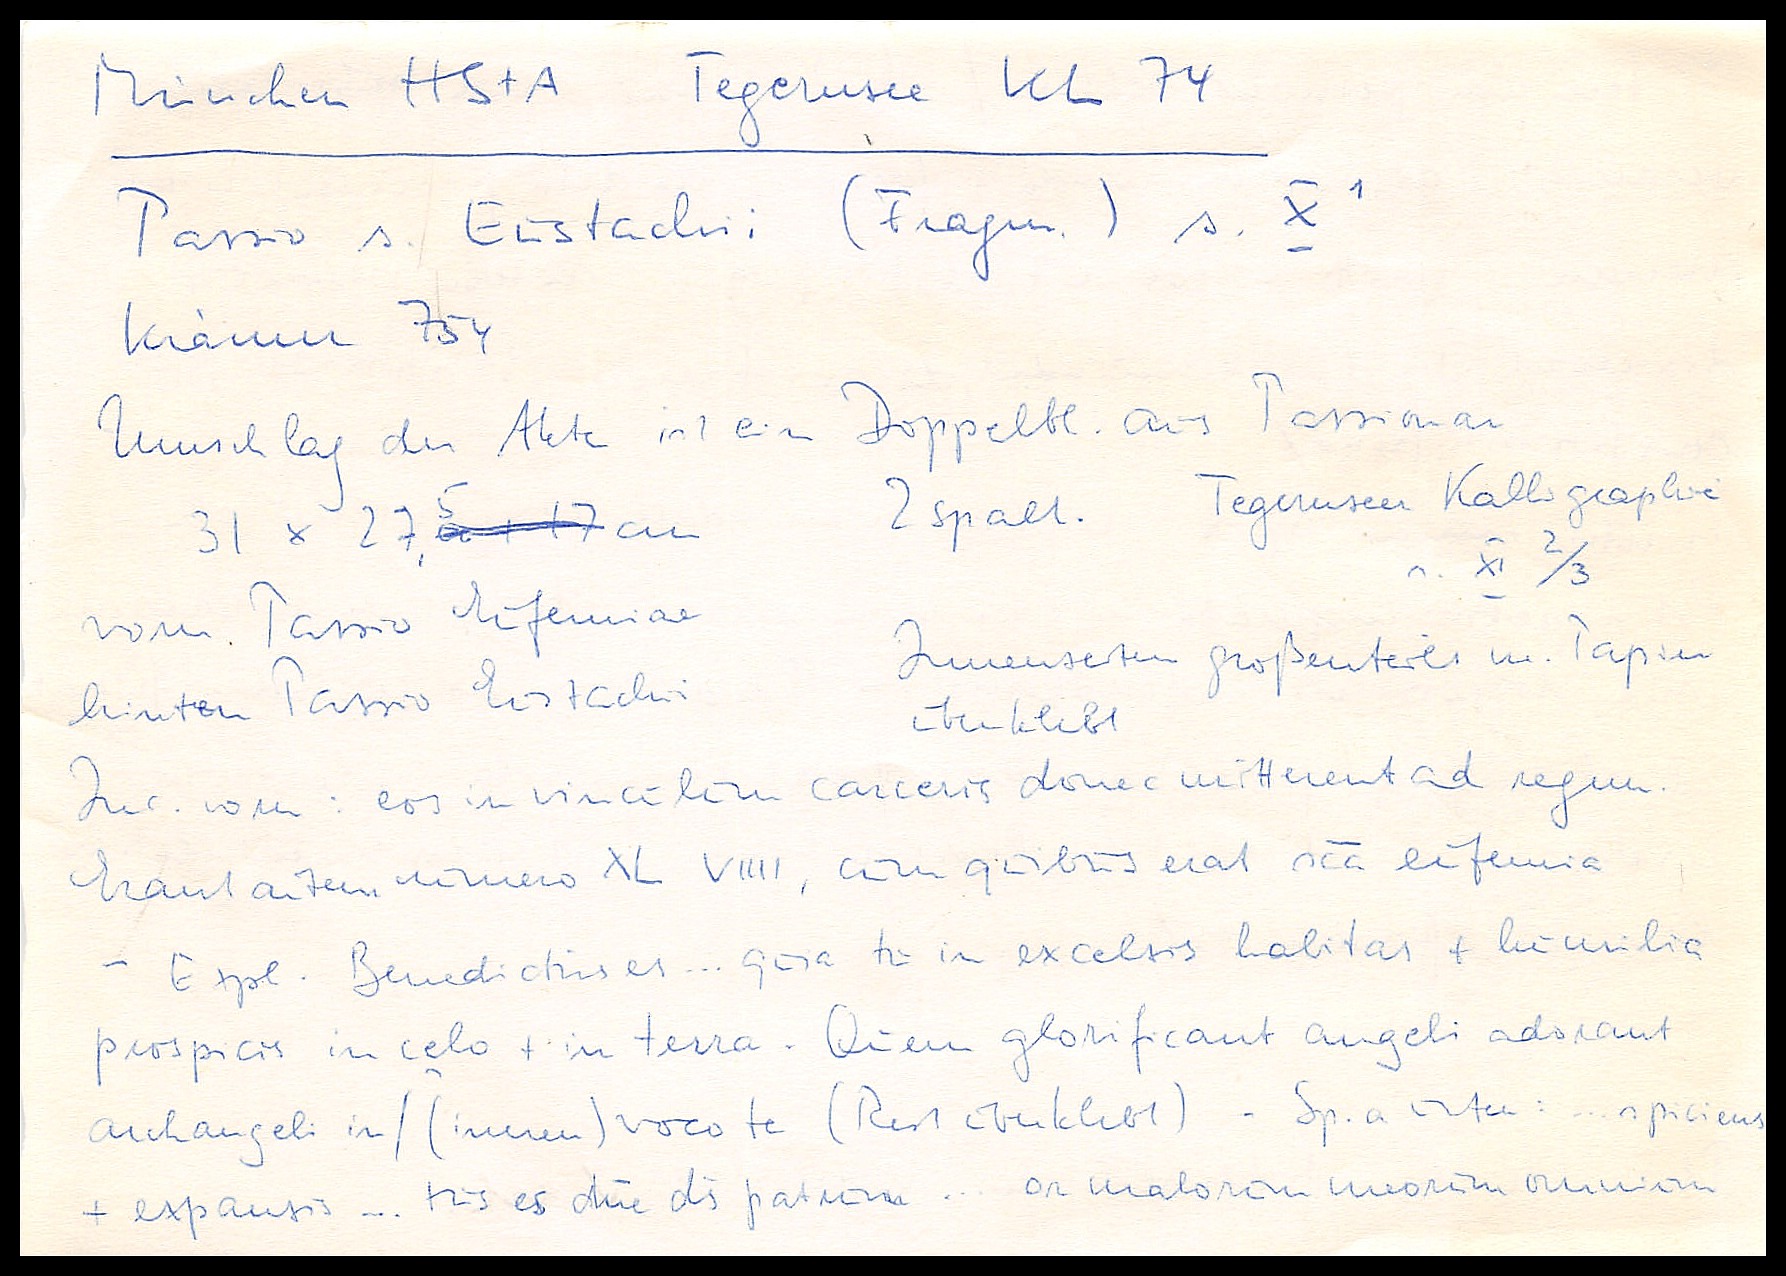 München HStA Tegernsee KL 74
Passio s. Eustachii (Fragm.) s. X¹
Krämer 754
Umschlag der Akte ist ein Doppelbl. aus Passionar
31 x 27,5 cm 2spalt. Tegernseer Kalligraphie
s. XI 2/3
vorn. Passio Eufemiae
hinten Passio Eustachii
Innenseiten großenteils m. Papier
überklebt
Inc. vorn: eos in vinculum carceris donec mitterent ad regem.
Erant autem numero XL VIIII, cum quibus erat scā eufemia
- Expl. Benedictus es ... quia tu in excelsis habitas + humilia
prospicis in cęlo + in terra. Quem glorificant angeli adorant
archangeli in/(innen) voco te (Rest überklebt) - Sp. a unten: ... spiciens
+ expansis ... tus es dn̄e ds̄ patrum ... or malorum meorum omnium